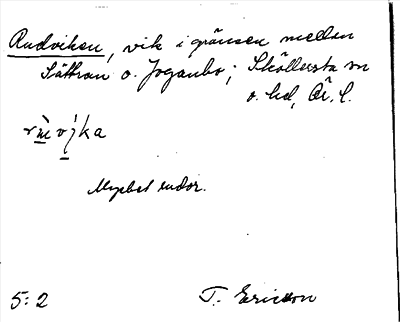 Rudviken, vik i gränsen mellan
Sättran o. Joganbo; Sköllersta sn
o. hd, Ör. l.
Mycket rudor.
5:2 T. Ericson